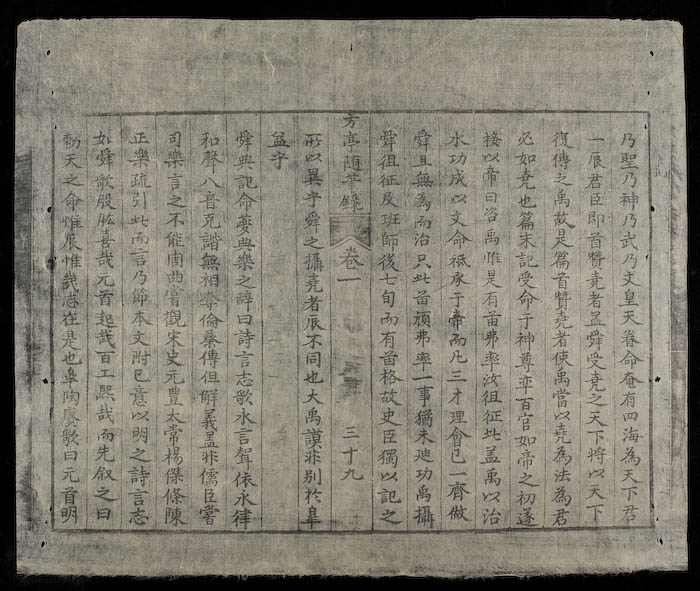 乃聖乃神乃武乃文皇天眷命奄有四海為天下君
一辰君臣即首贊堯者盖舜受堯之天下將以天下
復傳之禹故是篇首贊堯者使禹當以堯為法為君
必如堯也篇末記受命于神尊率百官如帝之初遂
接以帝曰咨禹惟是有苗弗率汝徂征此盖禹以治
水功成以文命祗承于帝而凡三才理會已一齊做
舜且無為而治只此苗頑弗率一事猶未迪功禹攝
舜徂征及班師後七旬而有苗格故史臣獨以記之
方亭隨筆錄 卷一 三十九
所以異乎舜之攝堯者辰不同也大禹謨非别於皐
益乎
舜典記命夔典樂之辭曰詩言志歌永言聲依永律
和聲八音克諧無相奪倫蔡傳但解義盖非儒臣當
司樂言之不能周曲嘗觀宋史元豊太常楊傑條陳
正樂疏引此而言乃節本文附已意以明之詩言志
如舜歌股肱喜哉元首起哉百工熙哉而先叙之曰
勑天之命惟辰惟幾志在是也皐陶賡歌曰元首明